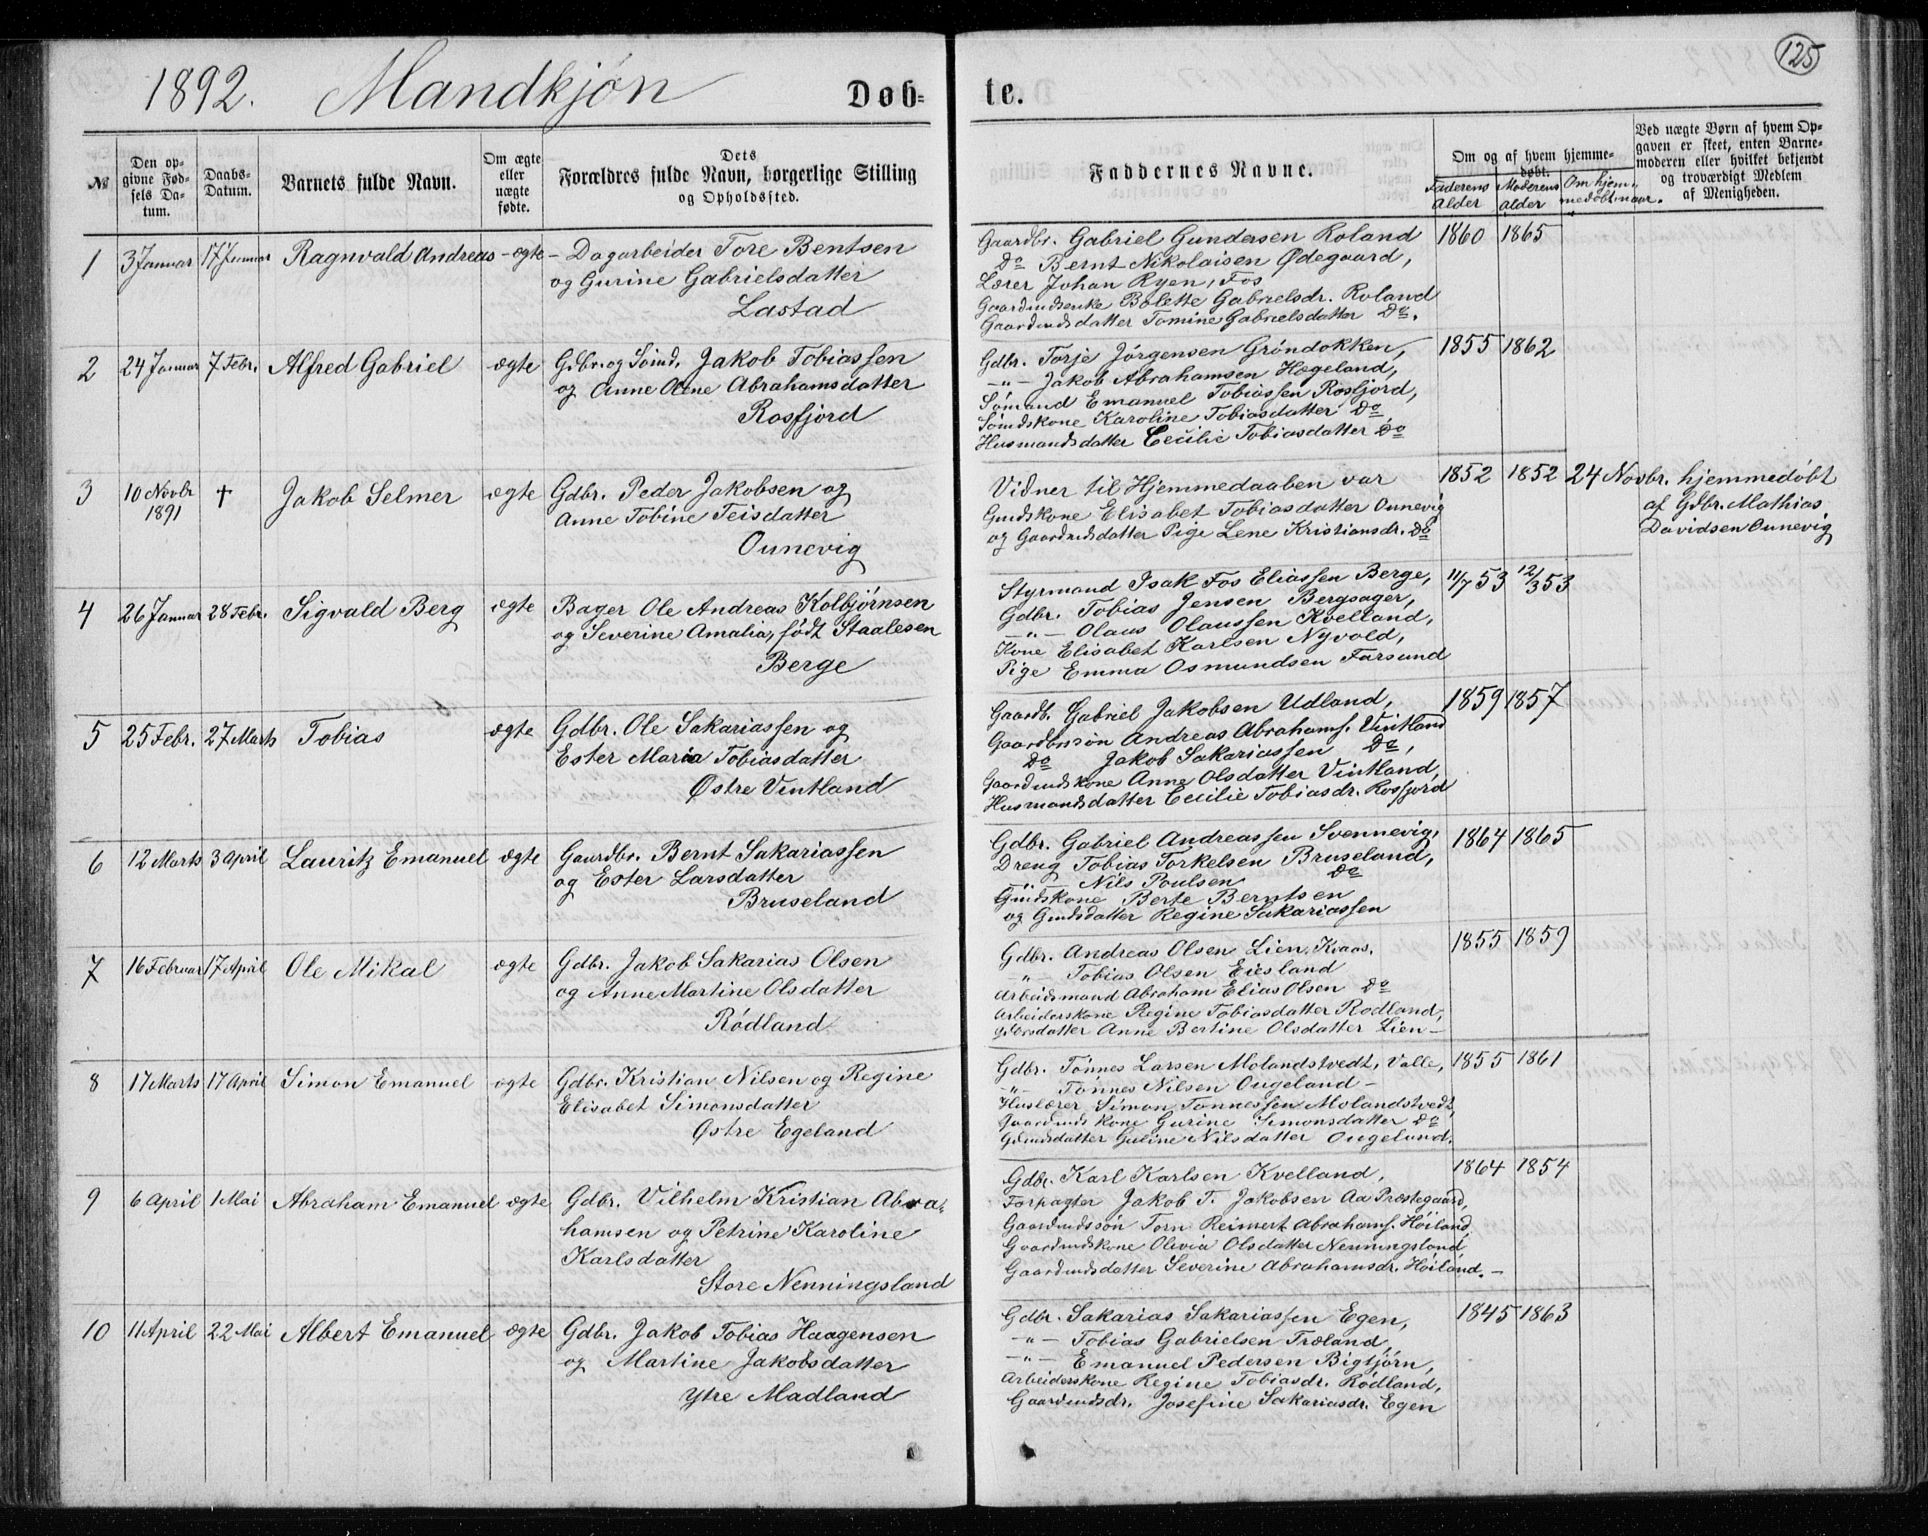 125
1892. Mandkjøn Døb= te.
№
Den op-
givne Fød-
sels Da-
tum.
Daabs-
Datum.
Barnets fulde Navn.
Om ægte
eller
uægte
fødte.
Dets
Forældres fulde Navn, borgerlige Stilling
og Opholdssted.
Faddernes Navne.
Om og af hvem hjemme-
døbt.
Faderens
Alder
Moderens
alder
Om hjem-
medøbt, naar.
Ved uægte Børn af hvem Op-
gaven er skeet, enten Barne-
moderen eller hvilket bekjendt
og troværdigt Medlem
af Menigheden.
1 3 Januar 17 Januar Ragnvald Andreas - ægte - Dagarbeider Tore Bentsen
og Gurine Gabrielsdatter
Lastad
Gaardbr. Gabriel Gundersen Roland 1860 1865
Do Bernt Nikolaisen Ødegaard,
Lærer Johan Ryen, Fos
Gaardmdsenke Bolette Gabrielsdr. Roland
Gaardmdsdatter Tomine Gabrielsdatter Do.
2 24 Januar 7 Febr. Alfred Gabriel ægte Gdbr. og Sømd. Jakob Tobiassen
og Anne Oline Abrahamsdatter
Rosfjord
Gdbr. Torje Jørgensen Grøndokken, 1855 1862
-"- Jakob Abrahamsen Hægeland,
Sømand Emanuel Tobiassen Rosfjord,
Sømdskone Karoline Tobiasdatter Do
Husmandsdatter Cecilie Tobiasdatter Do
3 10 Novbr 1891 † Jakob Selmer ægte Gdbr. Peder Jakobsen og
Anne Tobine Teisdatter
Ounevig
Vidner til Hjemmedaaben var 1852 1852 24 Novbr. hjemmedøbt
Gmdskone Elisabet Tobiasdatter Ounevig af Gdbr. Mathias
og Gaardmdsdatter Pige Lene Kristiansdr. Do Davidsen Ounevig
4 26 Januar 28 Febr. Sigvald Berg ægte Bager Ole Andreas Kolbjørnsen
og Severine Amalia, født Staalesen
Berge
Styrmand Isak Fos Eliassen Berge, 11/7 53 12/3 53
Gdbr. Tobias Jensen Bergsager,
-"- Olaus Olaussen Kvelland,
Kone Elisabet Karlsen Nyvold,
Pige Emma Osmundsen Farsund
5 25 Febr. 27 Marts Tobias ægte Gdbr. Ole Sakariassen og
Ester Maria Tobiasdatter
Østre Vintland
Gaardb. Gabriel Jakobsen Udland, 1859 1857
Gaardbrsøn Andreas Abrahams. Vintland
Do Jakob Sakariassen Do,
Gaardmdskone Anne Olsdatter Vintland,
Husmandsdatter Cecilie Tobiasdr. Rosfjord
6 12 Marts 3 April Lauritz Emanuel ægte Gaardbr. Bernt Sakariassen
og Ester Larsdatter
Bruseland
Gdbr. Gabriel Andreassen Svennevig, 1864 1865
Dreng Tobias Torkelsen Bruseland,
" Nils Poulsen Do
Gmdskone Berte Berntsen
og Gmdsdatter Regine Sakariassen
7 16 Februar 17 April Ole Mikal ægte Gdbr. Jakob Sakarias Olsen
og Anne Martine Olsdatter
Rødland
Gdbr. Andreas Olsen Lien, Kvaas. 1855 1859
"- Tobias Olsen Eiesland
Arbeidsmand Abraham Elias Olsen Do
Arbeiderskone Regine Tobiasdatter Rødland,
Gdbrsdatter Anne Bertine Olsdatter Lien -
8 17 Marts 17 April Simon Emanuel ægte Gdbr. Kristian Nilsen og Regine
Elisabet Simonsdatter
Østre Egeland
Gdbr. Tønnes Larsen Molandstvedt, Valle, 1855 1861
-"- Tønnes Nilsen Ougeland -
Huslærer Simon Tønnessen Molandstvedt,
Gaardmdskone Gurine Simonsdatter Do
Gdmdsdatter Guline Nilsdatter Ougeland.
9 6 April 1 Mai Abraham Emanuel ægte Gdbr. Vilhelm Kristian Abra-
hamsen og Petrine Karoline
Karlsdatter
Store Nenningsland
Gdbr. Karl Karlsen Kvelland, 1864 1854
Forpagter Jakob T. Jakobsen Aa Præstegaard,
Gaardmdssøn Torn Reimert Abrahams. Høiland,
Gaardmdskone Olivia Olsdatter Nenningsland
Gaardmdsdatter Severine Abrahamsdr. Høiland. -
10 11 April 22 Mai Albert Emanuel ægte Gdbr. Jakob Tobias Haagensen
og Martine Jakobsdatter
Ytre Madland
Gdbr. Sakarias Sakariassen Egen, 1845 1863
-"- Tobias Gabrielsen Træland,
-"- Emanuel Pedersen Bigtjørn,
Arbeiderskone Regine Tobiasdr. Rødland,
Gaardmdsdr. Josefine Sakariasdr. Egen